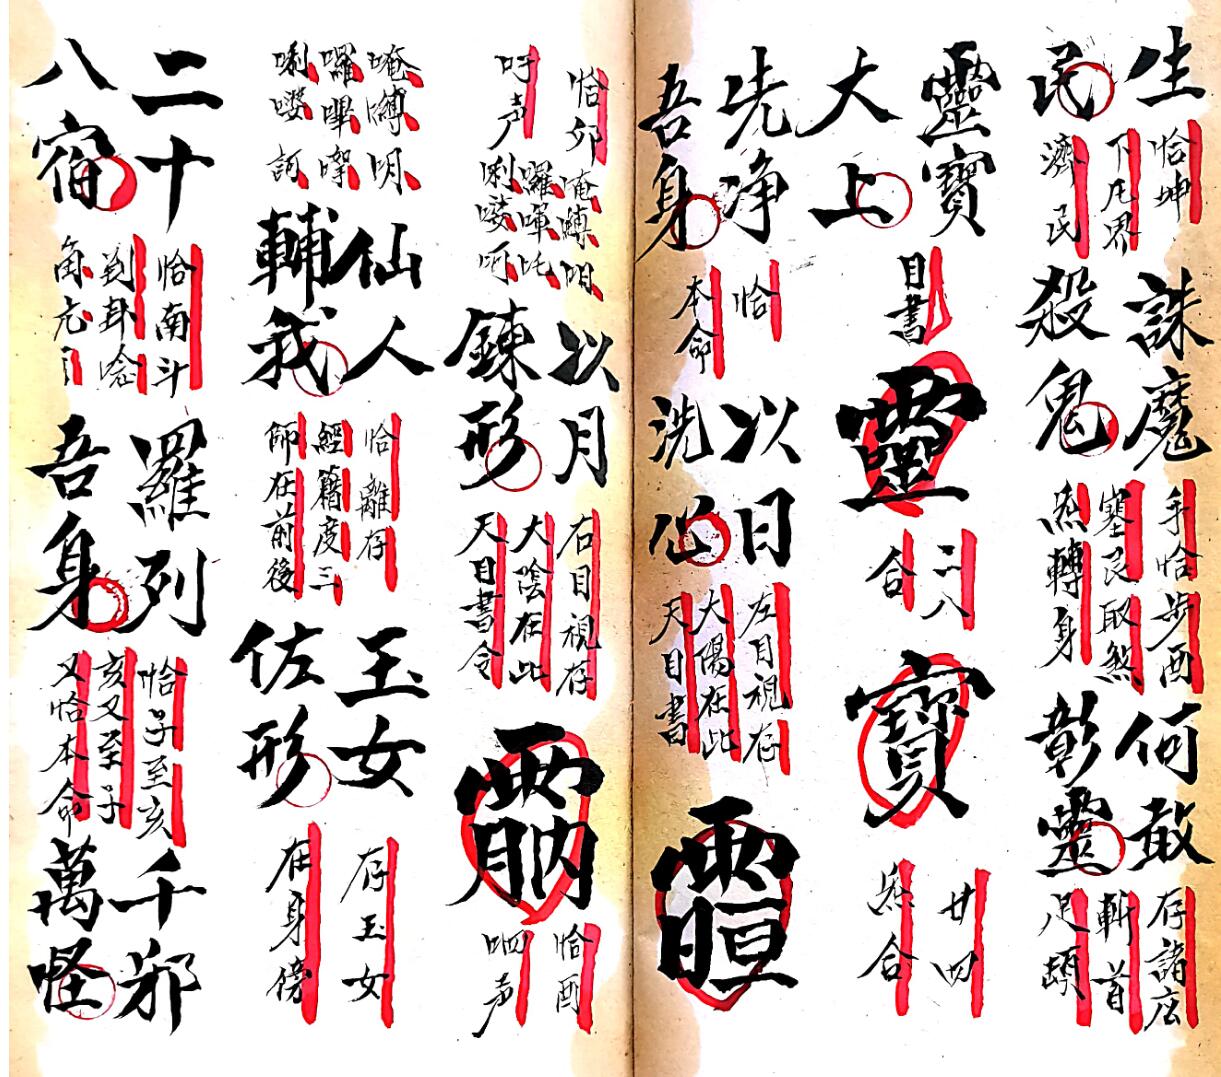 生
民
恰坤
下凡界
濟民
誅魔
殺鬼
手恰步酉
塞艮取煞
炁轉身
何敢
彰靈
存諸
斬首
足
靈寶
大上
目書
靈
二八
合
寶
廿四
炁合
先净
吾身
恰
本命
以日
洗
左目視存
大陽在此
天目書
恰卯
吽声
唵
囉
唎
以月
鍊形
右目視存
大陰在此
天目書令
恰酉
声
唵嚩
囉嗶
唎
仙人
輔我
恰離存
經籍度三
師在前後
玉女
佐形
存玉女
在身傍
二十
八宿
恰南斗
卦念
角亢
羅列
吾身
恰子至亥
亥又至子
又恰本命
千邪
萬怪